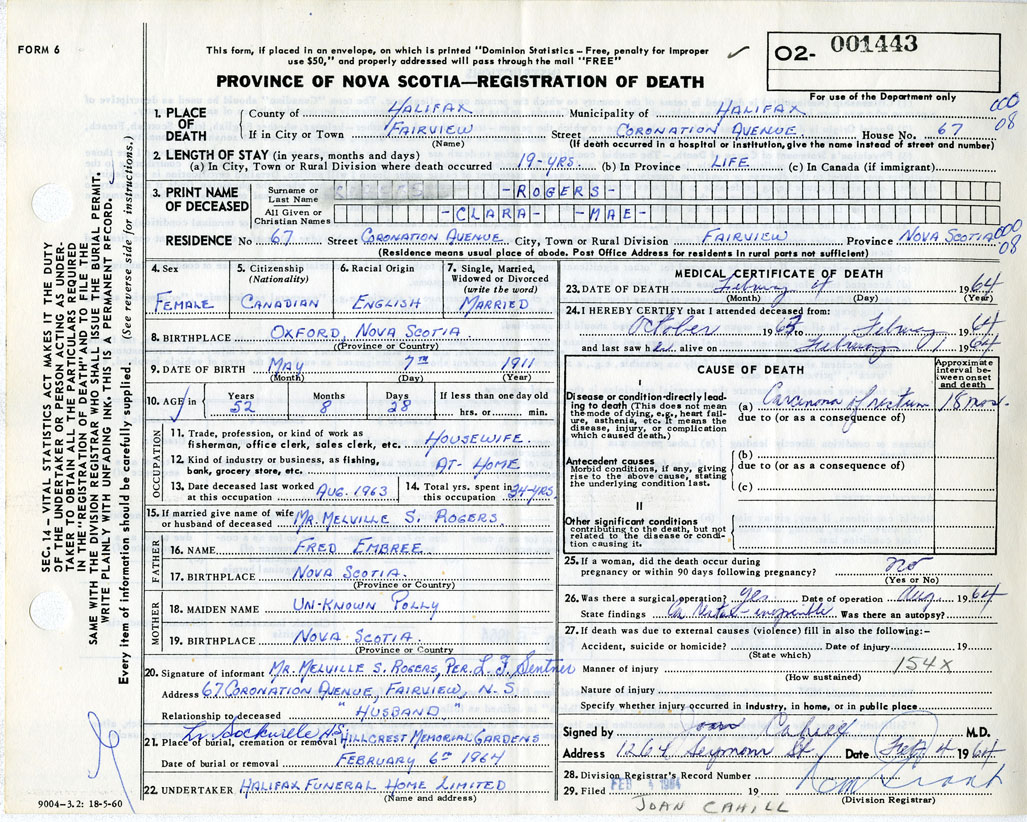 FORM 6
This form, if placed in an envelope, on which is printed "Dominion Statistics – Free, penalty for improper
use $50," and properly addressed will pass through the mail "FREE"
O2- 001443
PROVINCE OF NOVA SCOTIA—REGISTRATION OF DEATH
For use of the Department only
1. PLACE OF DEATH
County of HALIFAX Municipality of HALIFAX 000
If in City or Town FAIRVIEW Street CORONATION AVENUE House No. 67 08
(Name) (If death occurred in a hospital or institution, give the name instead of street and number)
2. LENGTH OF STAY (in years, months and days)
(a) In City, Town or Rural Division where death occurred 19-YRS. (b) In Province LIFE (c) In Canada (if immigrant)
3. PRINT NAME OF DECEASED
Surname or Last Name -ROGERS-
All Given or Christian Names -CLARA- -MAE-
RESIDENCE No 67 Street CORONATION AVENUE City, Town or Rural Division FAIRVIEW Province NOVA SCOTIA 000
08
(Residence means usual place of abode. Post Office Address for residents in rural parts not sufficient)
4. Sex
FEMALE
5. Citizenship
(Nationality)
CANADIAN
6. Racial Origin
ENGLISH
7. Single, Married,
Widowed or Divorced
(write the word)
MARRIED
8. BIRTHPLACE OXFORD, NOVA SCOTIA
(Province or Country)
9. DATE OF BIRTH MAY 7TH 1911
(Month) (Day) (Year)
10. AGE
Years Months Days If less than one day old
52 8 28 hrs. or min.
OCCUPATION
11. Trade, profession, or kind of work as
fisherman, office clerk, sales clerk, etc. HOUSEWIFE.
12. Kind of industry or business, as fishing,
bank, grocery store, etc. AT-HOME
13. Date deceased last worked
at this occupation AUG. 1963
14. Total yrs. spent in
this occupation 34-YRS.
15. If married give name of wife
or husband of deceased MR. MELVILLE S. ROGERS
FATHER
16. NAME FRED EMBREE
17. BIRTHPLACE NOVA SCOTIA.
(Province or Country)
MOTHER
18. MAIDEN NAME UN-KNOWN POLLY
19. BIRTHPLACE NOVA SCOTIA.
(Province or Country)
20. Signature of informant MR. MELVILLE S. ROGERS, PER. L. F. Sentner
Address 67 CORONATION AVENUE, FAIRVIEW, N.S
Relationship to deceased " HUSBAND "
21. Place of burial, cremation or removal HILLCREST MEMORIAL GARDENS
Date of burial or removal FEBRUARY 6TH 1964
22. UNDERTAKER HALIFAX FUNERAL HOME LIMITED
(Name and address)
MEDICAL CERTIFICATE OF DEATH
23. DATE OF DEATH February 4 1964
(Month) (Day) (Year)
24. I HEREBY CERTIFY that I attended deceased from:
October 1963, to February 1964
and last saw her alive on February 1964
CAUSE OF DEATH
Approximate
interval be-
tween onset
and death
I
Disease or condition directly lead-
ing to death (This does not mean
the mode of dying, e.g., heart fail-
ure, asthenia, etc. It means the
disease, injury, or complication
which caused death.)
(a) Carcinoma of rectum 18 mos.
due to (or as a consequence of)
Antecedent causes
Morbid conditions, if any, giving
rise to the above cause, stating
the underlying condition last.
(b)
due to (or as a consequence of)
(c)
II
Other significant conditions
contributing to the death, but not
related to the disease or condi-
tion causing it.
25. If a woman, did the death occur during
pregnancy or within 90 days following pregnancy? no
(Yes or No)
26. Was there a surgical operation? yes Date of operation Aug 1964
State findings Ca rectum - inoperable Was there an autopsy?
27. If death was due to external causes (violence) fill in also the following:–
Accident, suicide or homicide? Date of injury 19
(State which)
Manner of injury 154X
(How sustained)
Nature of injury
Specify whether injury occurred in industry, in home, or in public place
Signed by Joan Cahill M.D.
Address 1264 Seymour St. Date Feb 4 1964
28. Division Registrar's Record Number
29. Filed FEB 4 1964 19
(Division Registrar)
JOAN CAHILL
9004–3.2: 18-5-60
SEC. 14 – VITAL STATISTICS ACT MAKES IT THE DUTY
OF THE UNDERTAKER OR PERSON ACTING AS UNDER-
TAKER TO OBTAIN ALL THE PARTICULARS REQUIRED
IN THE "REGISTRATION OF DEATH" AND TO FILE THE
SAME WITH THE DIVISION REGISTRAR WHO SHALL ISSUE THE BURIAL PERMIT.
WRITE PLAINLY WITH UNFADING INK. THIS IS A PERMANENT RECORD.
Every item of information should be carefully supplied. (See reverse side for instructions.)